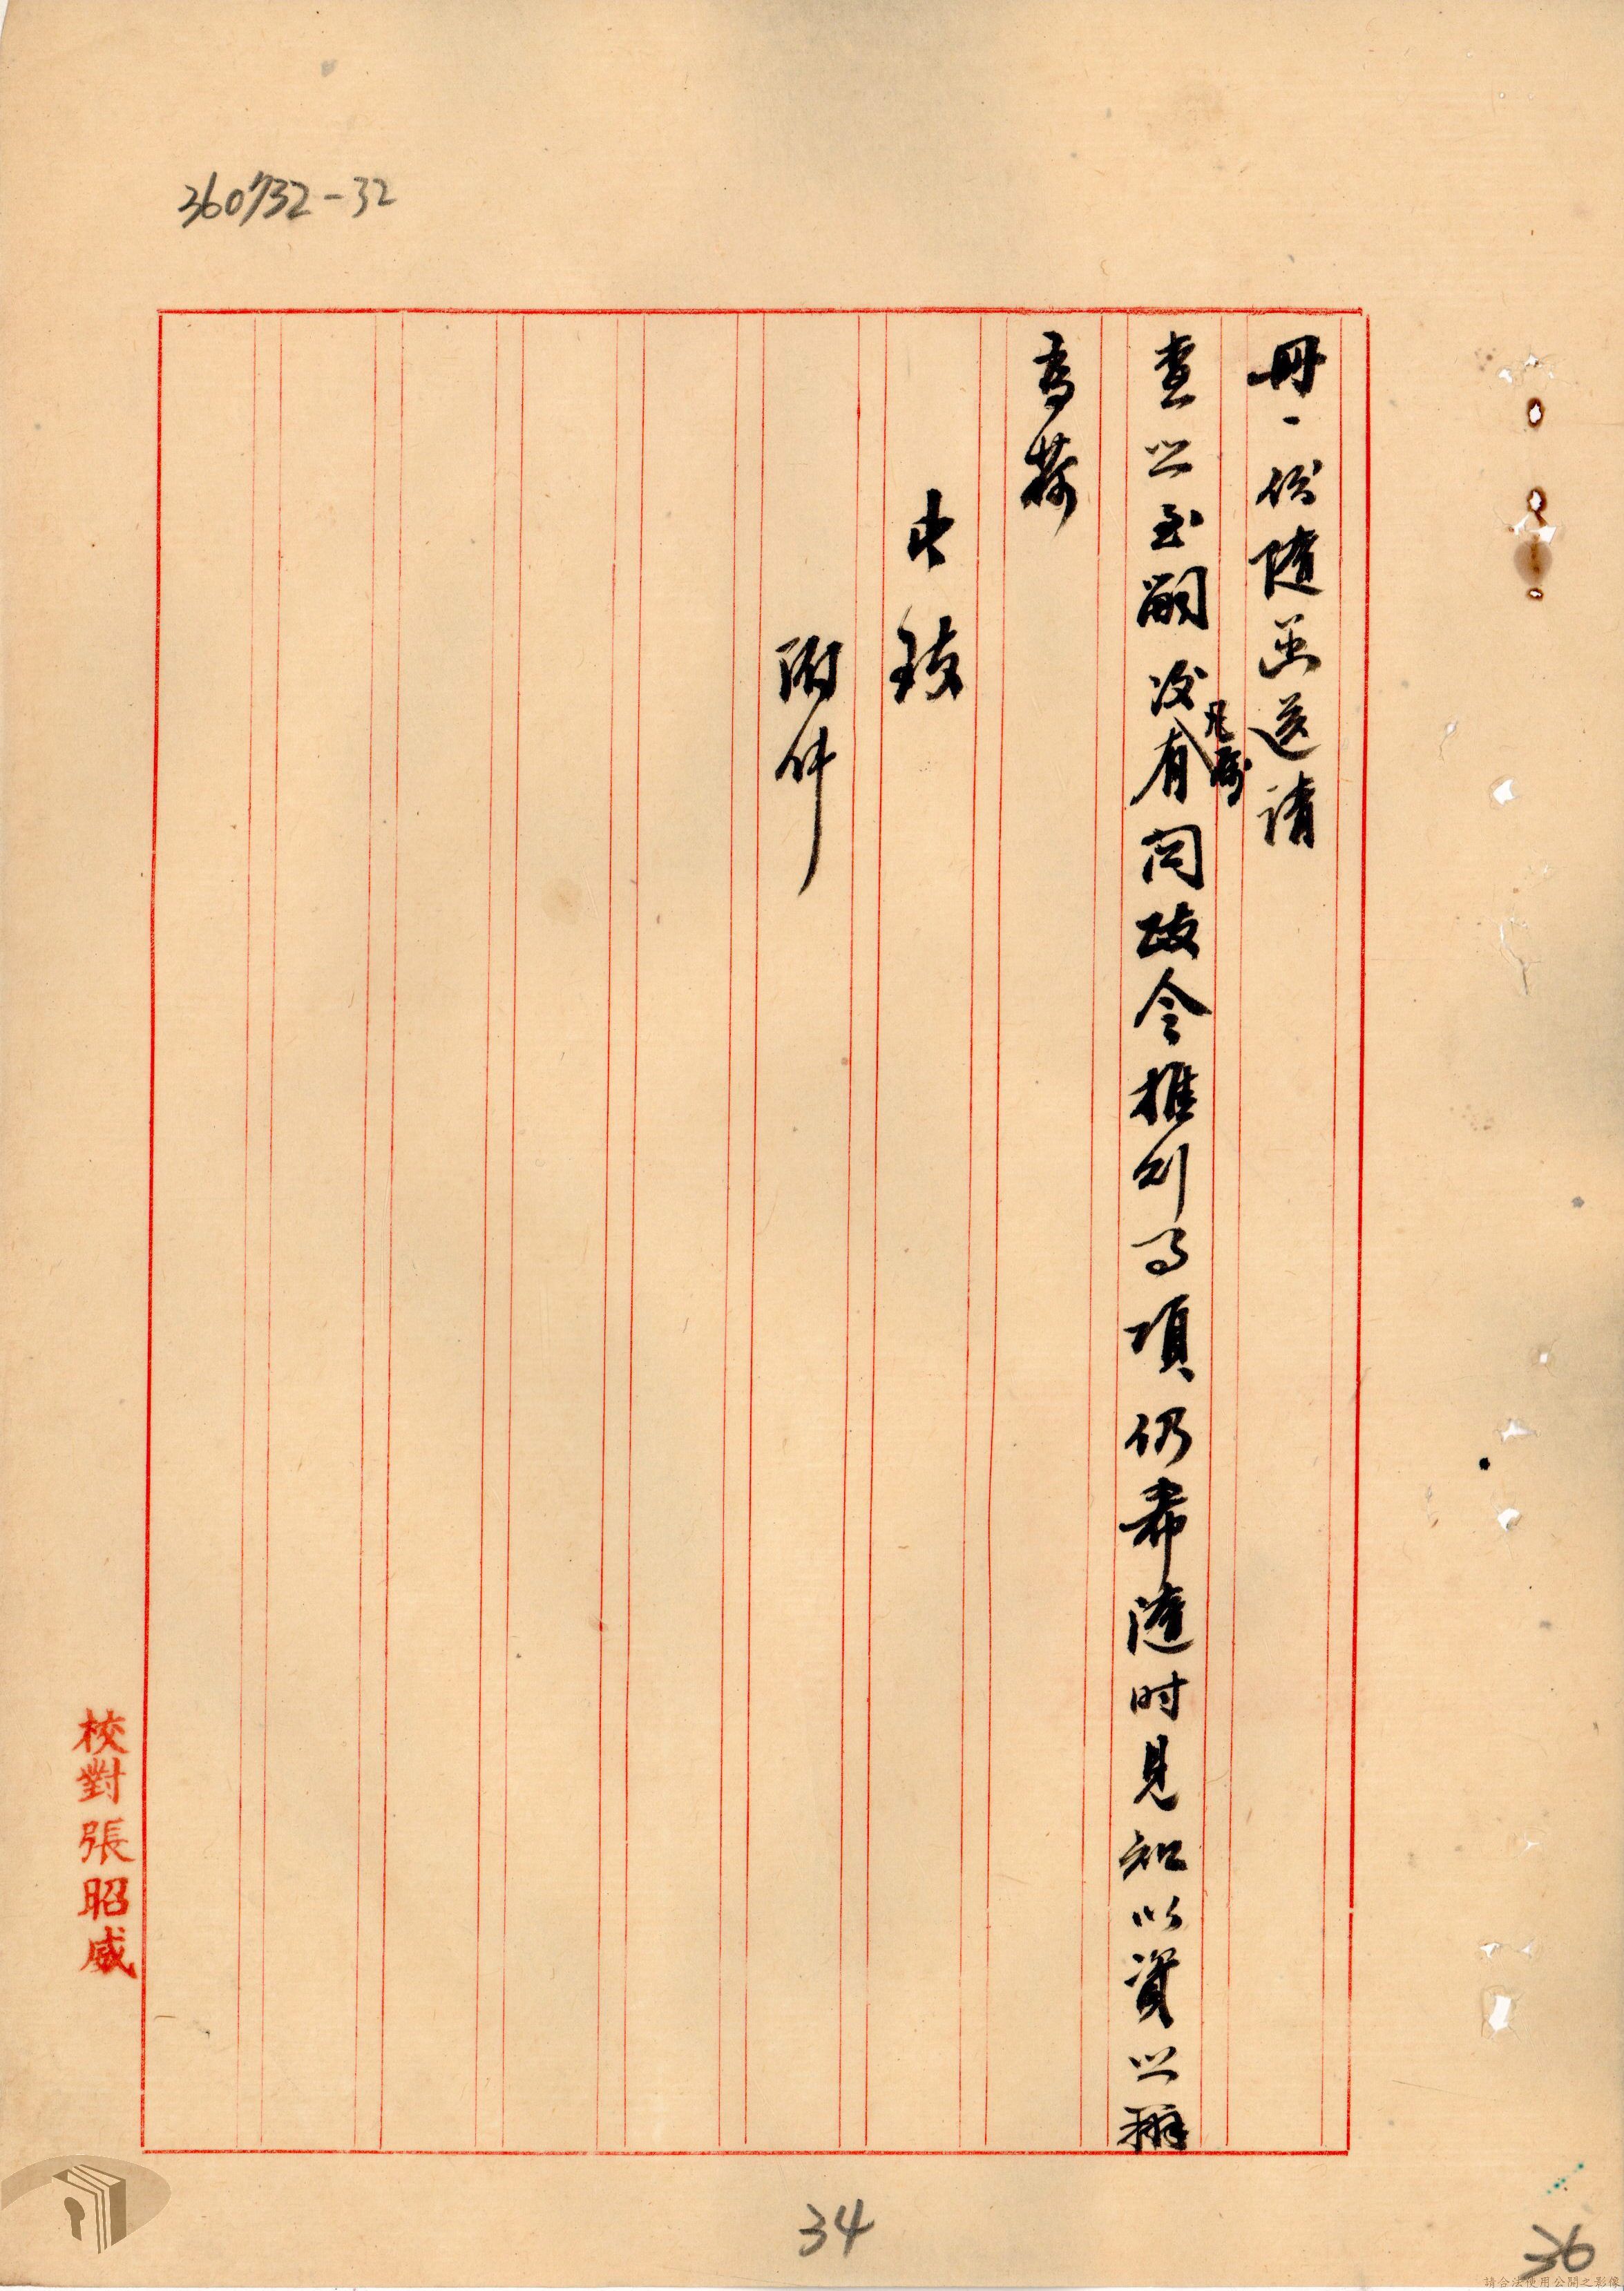 360732-32
冊一份隨函送請
查照至嗣後凡屬有関政令推行事項仍希隨时見知以資照辦
為荷
此致
附件
校對張昭威
34
36
請合法使用公開之影像